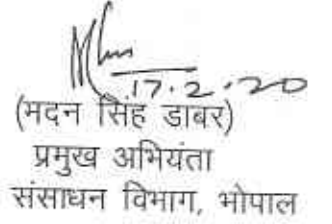 17.2.20
(मदन सिंह डाबर)
प्रमुख अभियंता
संसाधन विभाग, भोपाल